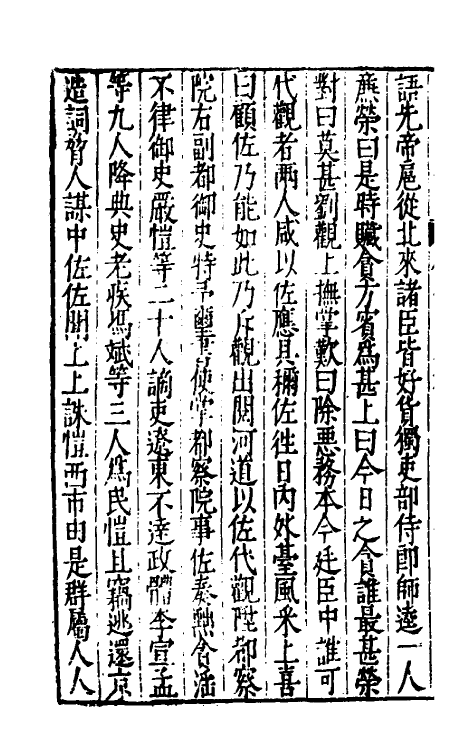 語先帝扈從北來諸臣皆好貨獨吏部侍郎師逵一人
廉榮曰是時贓貪方賓為甚上曰今日之貪誰最甚榮
對曰莫甚劉觀上撫掌歎曰除惡務本今廷臣中誰可
代觀者兩人咸以佐應具稱佐徃日內外臺風采上喜
曰顧佐乃能如此乃斥觀出閱河道以佐代觀陞都察
院右副都御史特予璽書使掌都察院事佐奏黜舍潘
不律御史嚴愷等二十人謫吏遼東不達政體李宣孟
等九人降典史老疾馮斌等三人為民愷且竊逃還京
造詞脅人謀中佐佐聞上上誅愷西市由是群屬人人